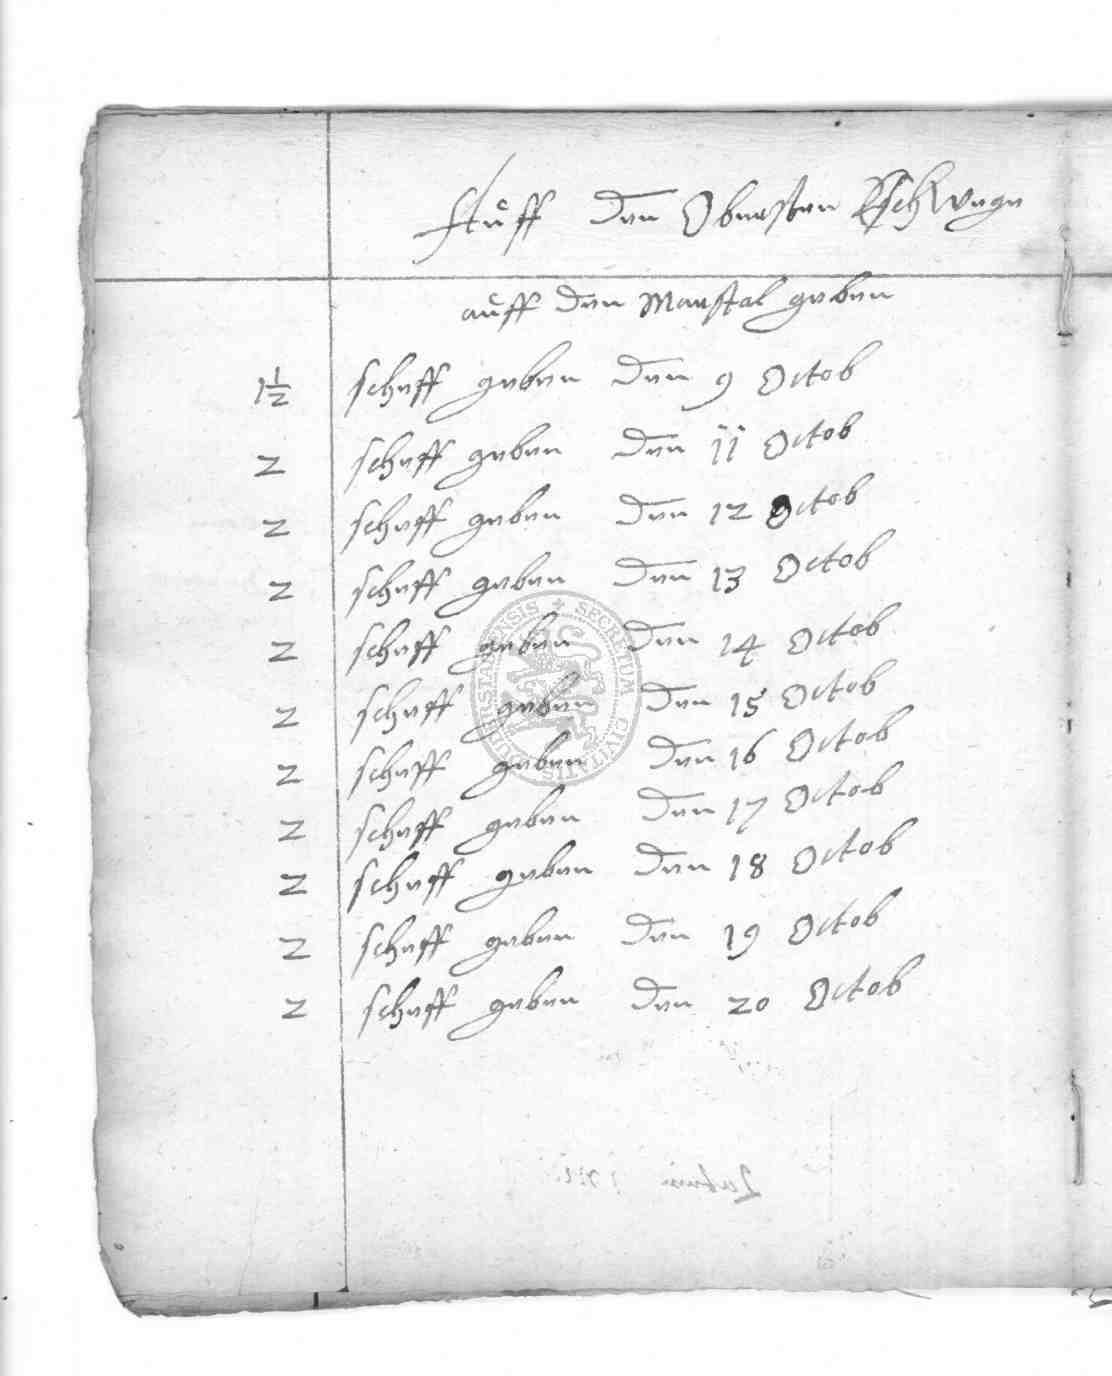 Auff den Obersten Eschwege
auff den Marstal geben
1½ scheff geben den 9 Octob
2 scheff geben den 11 Octob
2 scheff geben den 12 Octob
2 scheff geben den 13 Octob
2 scheff geben den 14 Octob
2 scheff geben den 15 Octob
2 scheff geben den 16 Octob
2 scheff geben den 17 Octob
2 scheff geben den 18 Octob
2 scheff geben den 19 Octob
2 scheff geben den 20 Octob
SECRETUM CIVITATIS DUDERSTATENSIS